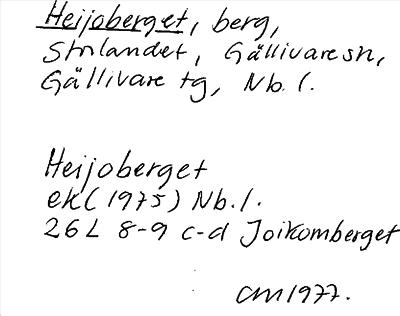 Heijoberget, berg,
Storlandet, Gällivare sn,
Gällivare tg, Nb. l.
Heijoberget
ek (1975) Nb. l.
26 L 8-9 c-d Joikomberget
CM 1977.